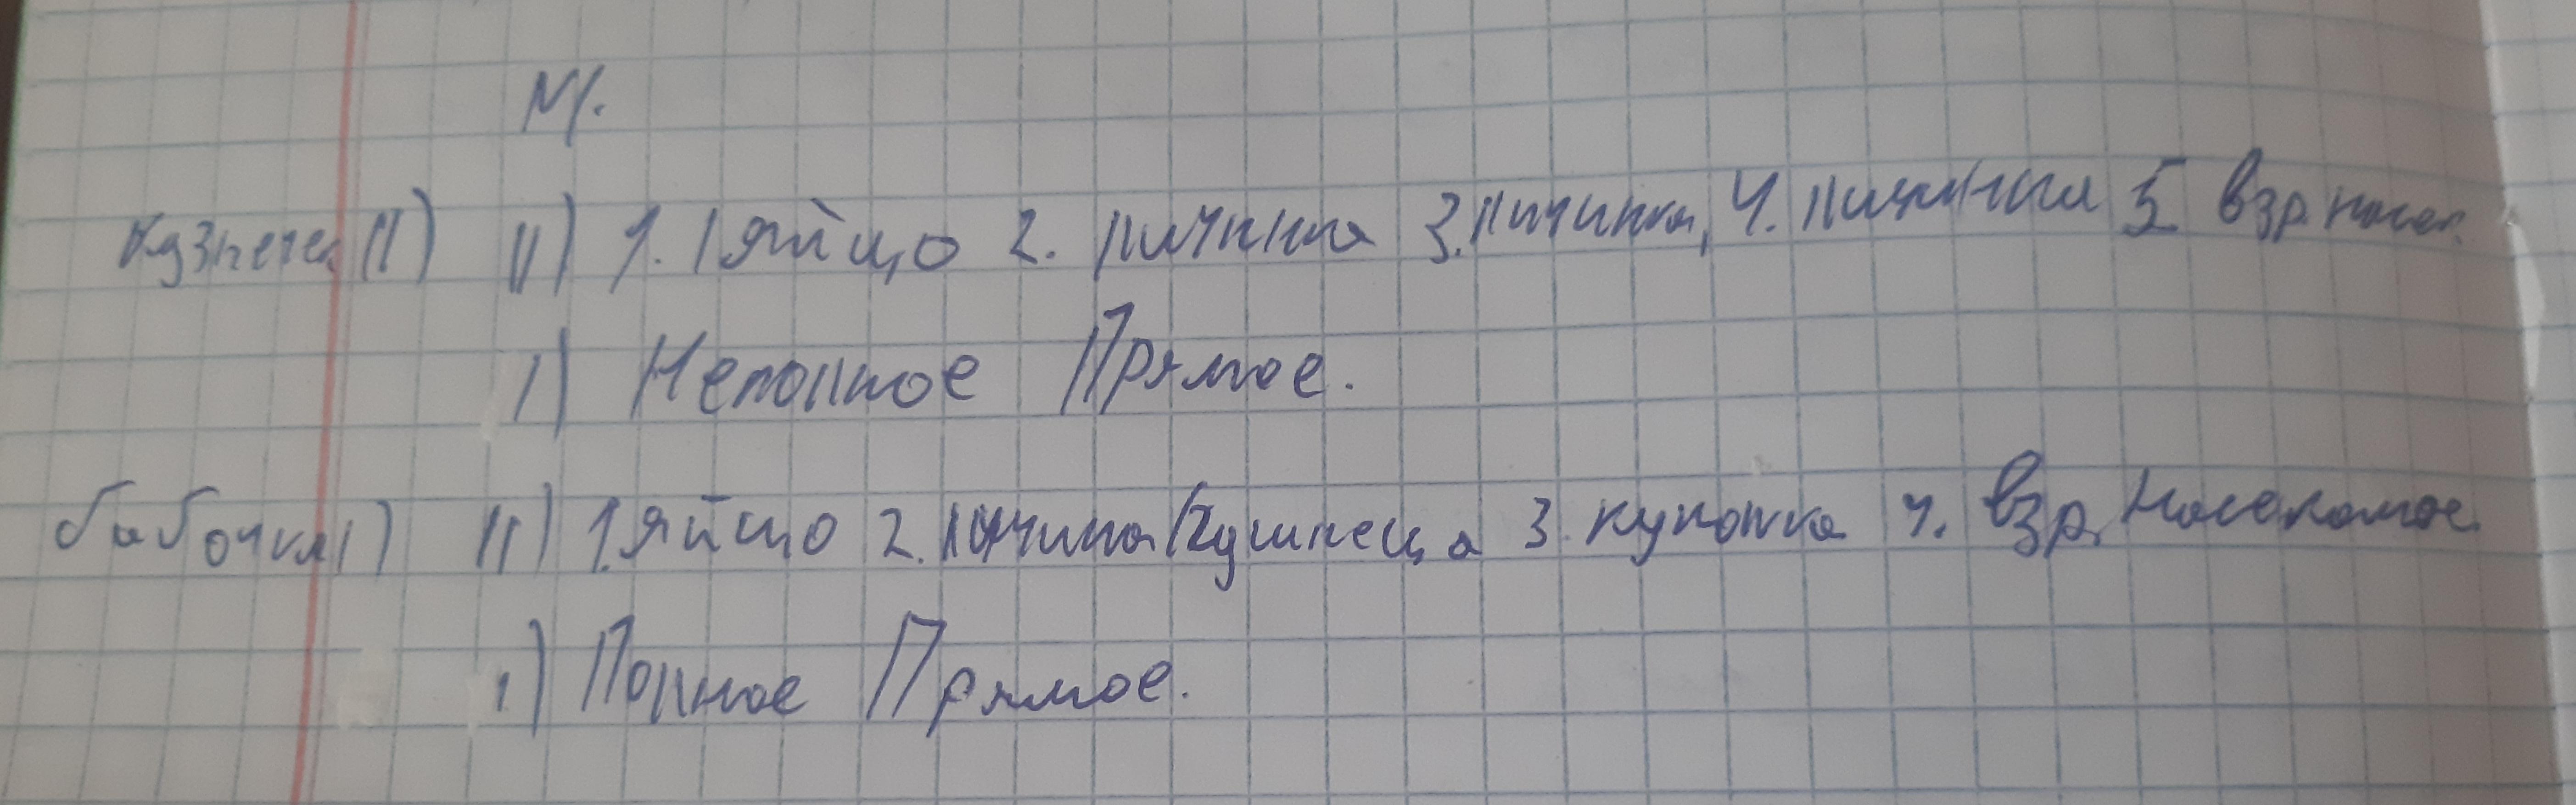 N1.
Кузнечек II) II) 1. яйцо 2. личинка 3. личинка, 4. личинка 5 взр. насек.
I) Неполное Прямое.
бабочка I) II) 1. яйцо 2. личина/гушнеца 3. куколка 4. взр. насекомое
I) Полное Прямое.